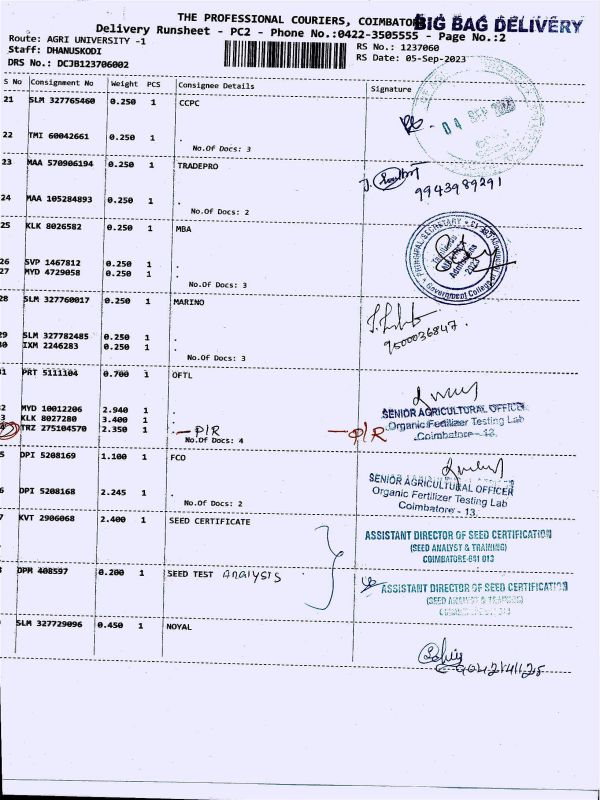 THE PROFESSIONAL COURIERS, COIMBATORE
BIG BAG DELIVERY
Delivery Runsheet - PC2 - Phone No.:0422-3505555 - Page No.:2
Route: AGRI UNIVERSITY -1
RS No.: 1237060
Staff: DHANUSKODI
RS Date: 05-Sep-2023
DRS No.: DCJB123706002
S No Consignment No Weight PCS Consignee Details Signature
21 SLM 327765460 0.250 1 CCPC
04 SEP
22 TMI 60042661 0.250 1 .
No.Of Docs: 3
23 MAA 570906194 0.250 1 TRADEPRO
9943989291
24 MAA 105284893 0.250 1 .
No.Of Docs: 2
25 KLK 8026582 0.250 1 MBA
PRINCIPAL SECRETARY
Government College
2023
26 SVP 1467812 0.250 1 .
27 MYD 4729058 0.250 1 .
No.Of Docs: 3
28 SLM 327760017 0.250 1 MARINO
9500036847.
29 SLM 327782485 0.250 1 .
30 IXM 2246283 0.250 1 .
No.Of Docs: 3
31 PRT 5111104 0.700 1 OFTL
2 MYD 10012206 2.940 1 .
3 KLK 8027280 3.400 1 .
4 TRZ 275104570 2.350 1 . - P/R
- P/R
No.Of Docs: 4
SENIOR AGRICULTURAL OFFICER
Organic Fertilizer Testing Lab
Coimbatore - 13.
5 DPI 5208169 1.100 1 FCO
6 DPI 5208168 2.245 1 .
No.Of Docs: 2
SENIOR AGRICULTURAL OFFICER
Organic Fertilizer Testing Lab
Coimbatore - 13.
7 KVT 2906068 2.400 1 SEED CERTIFICATE
ASSISTANT DIRECTOR OF SEED CERTIFICATION
(SEED ANALYST & TRAINING)
COIMBATORE-641 013
DPM 408597 0.200 1 SEED TEST Analysts
ASSISTANT DIRECTOR OF SEED CERTIFICATION
(SEED ANALYST & TRAINING)
SLM 327729096 0.450 1 NOYAL